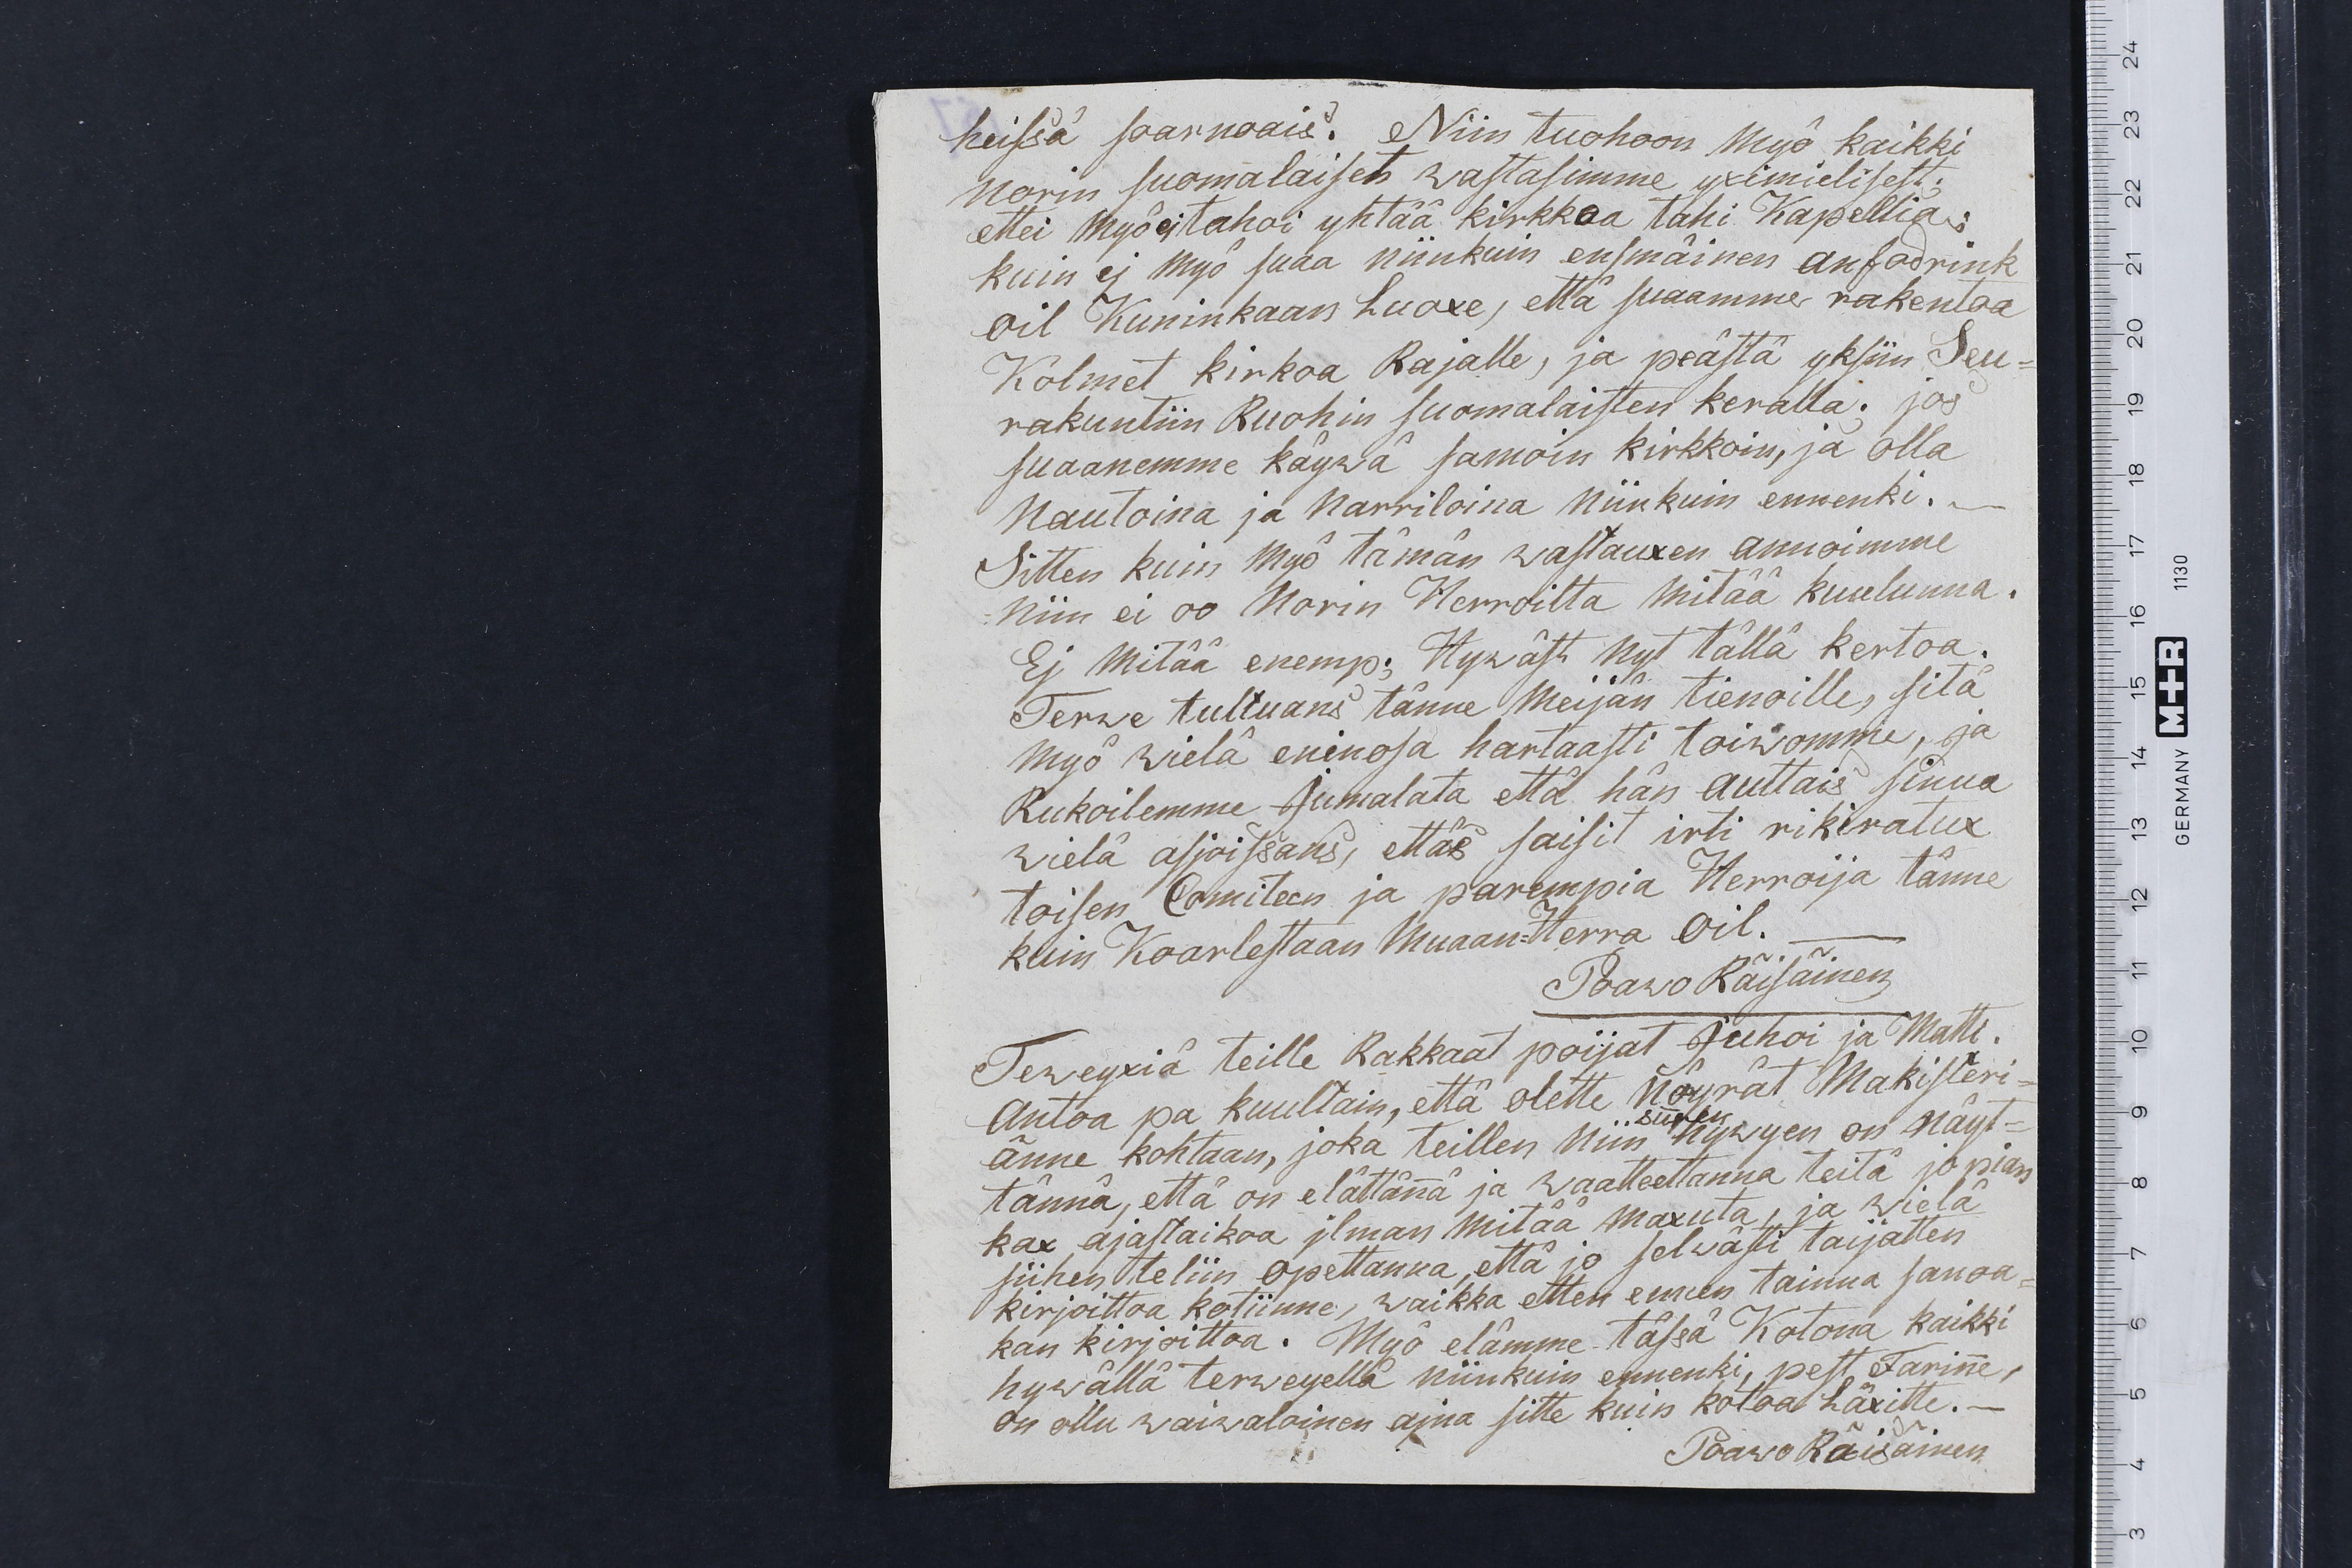 heissä saarnoais. Niin tuohoon Myö kaikki
Norin suomalaiset wastasimme yximielisest:
ettei Myö ej tahoi yhtää kirkkoa tahi Kapellia;
kuin ej Myö suaa niinkuin ensmäinen ansodrink
oil Kuninkaan Luoxe, että suaamme rakentoa
Kolmet kirkoa Rajalle, ja peästä yksiin Seu=
rakuntiin Ruohin suomalaisten keralla. jos
suaanemme käywä samoin kirkkoin, ja olla
Nautoina ja Narriloina Niinkuin ennenki. —
Sitten kuin Myö tämän wastauxen annoimme
niin ei oo Norin Herroilta Mitää kuulunna.
Ej Mitää enemp; Hywäst Nyt tällä kertoa.
Terwe tultuans tänne Meijän tienoille, sitä
Myö wielä eninosa hartaasti toiwomme, ja
Rukoilemme Jumalata että hän auttais sinua
wielä asjoissans, ettäs saisit irti rikiratux
toisen Comiteen ja parempia Herroija tänne
kuin Koarlestaan Muaan=Herra Oil.
Poawo Räisäinen
Teweyxiä teille Rakkaat poijat Juhoi ja Matti.
Antoa pa kuultain, että olette Nöyrät Makisteri=
änne kohtaan, joka teillen Niin suuren hywyen on Näyt=
tännä, että on elättännä ja waatteettanna teitä jo pian
kax ajastaikoa ilman Mitää Maxuta, ja wielä
siihen teliin opettanna, että jo selwästi taijatten
kirjoittoa kotiinne, waikka etten ennen tainna sanoa=
kan kirjoittoa. Myö elämme tässä Kotona kaikki
hywällä terweyellä niinkuin ennenki, pest Farinne,
on ollu waiwaloinen aina sitte kuin kotoa Läxitte. —
Poawo Räisäinen
24
23
22
21
20
19
18
17
16
15
14
13
12
11
10
9
8
7
6
5
4
3
GERMANY M+R 1130